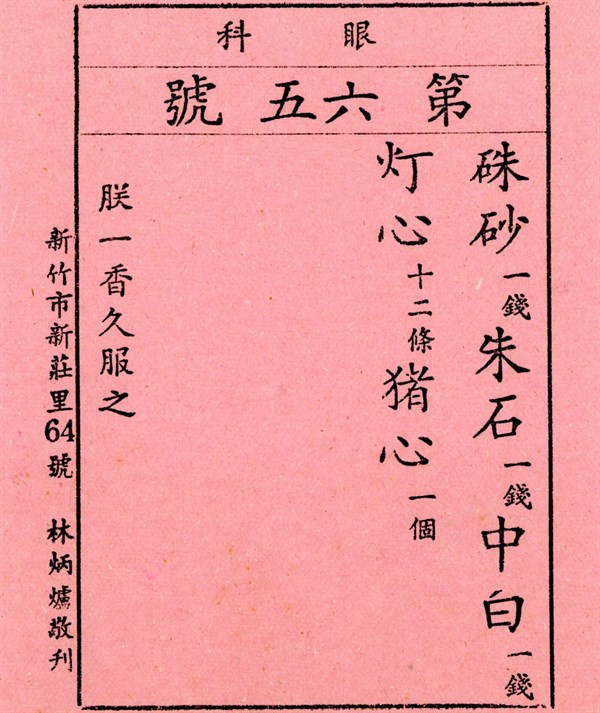 眼科
第六五號
硃砂一錢朱石一錢中白一錢
灯心十二條猪心一個
朕一香久服之
新竹市新莊里64號 林炳爐敬刋